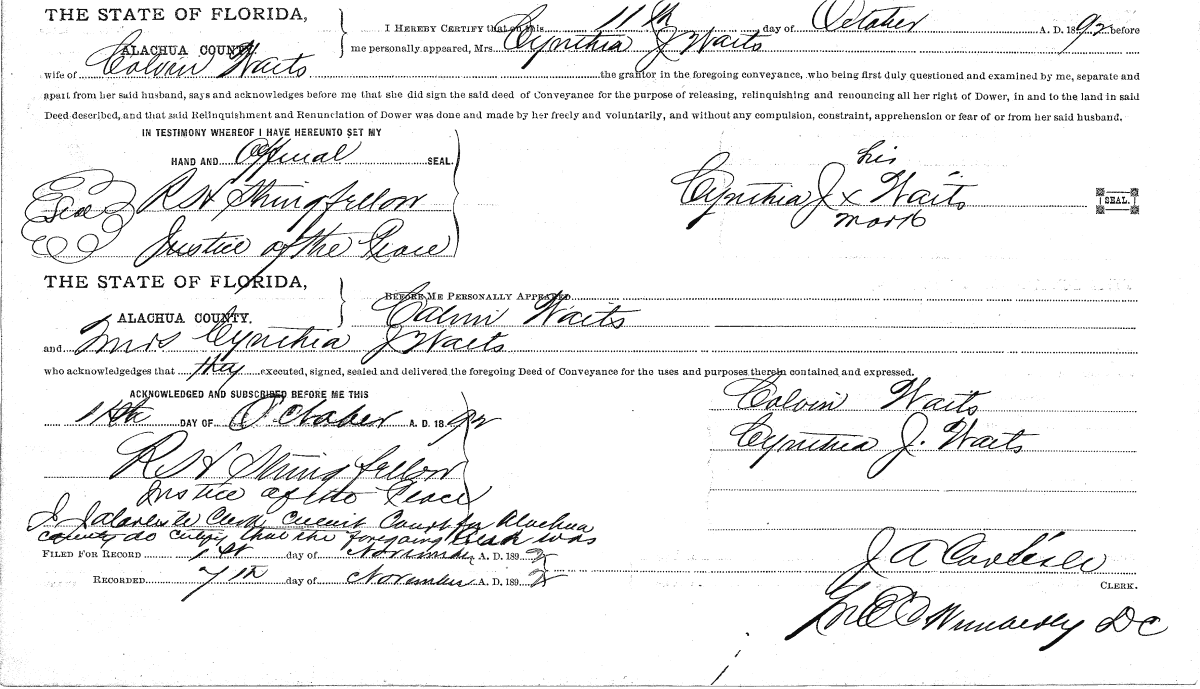 THE STATE OF FLORIDA,
ALACHUA COUNTY.
I HEREBY CERTIFY that on this 11th day of October A. D. 1892 before
me personally appeared, Mrs Cynthia J Waits
wife of Colvin Waits the grantor in the foregoing conveyance, who being first duly questioned and examined by me, separate and
apart from her said husband, says and acknowledges before me that she did sign the said deed of Conveyance for the purpose of releasing, relinquishing and renouncing all her right of Dower, in and to the land in said
Deed described, and that said Relinquishment and Renunciation of Dower was done and made by her freely and voluntarily, and without any compulsion, constraint, apprehension or fear of or from her said husband.
IN TESTIMONY WHEREOF I HAVE HEREUNTO SET MY
HAND AND Official SEAL.
Seal R S H Stringfellow
Justice of the Peace
his
Cynthia J x Waits
mark
SEAL.
THE STATE OF FLORIDA,
ALACHUA COUNTY.
BEFORE ME PERSONALLY APPEARED
Calvin Waits
and Mrs Cynthia J Waits
who acknowledgedges that they executed, signed, sealed and delivered the foregoing Deed of Conveyance for the uses and purposes therein contained and expressed.
ACKNOWLEDGED AND SUBSCRIBED BEFORE ME THIS
11th DAY OF October A. D. 1892
R S H Stringfellow
Justice of the Peace
Colvin Waits
Cynthia J. Waits
I J A Carlisle Clerk Circuit Court for Alachua
County do certify that the foregoing was
FILED FOR RECORD 1st day of November A. D. 1892
RECORDED 7th day of November A. D. 1892
J A Carlisle
CLERK.
Wimberly DC